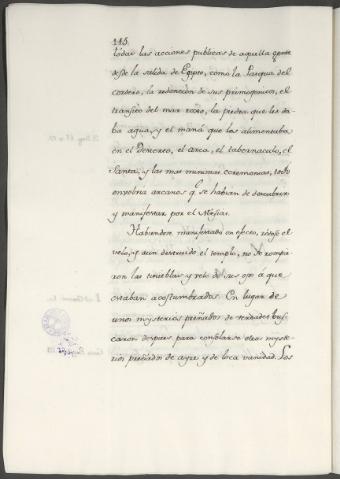 116.
todas las acciones publicas de aquella gente
desde la salida de Egipto, como la Pasqua del
cordero, la redencion de sus primogenitos, el
transito del mar roxo, la piedra que les da-
ba agua, y el maná que los alimentaba
en el Desierto, el arca, el tabernaculo, el
Santa, y las mas minimas ceremonias, todo
envolvia arcanos q.e se habian de descubrir
y manifestar por el Mesias.
Habiendose manifestado en efecto, el
velo, y aun destruido el templo, no se rompie-
ron las tinieblas y velo de sus ojos á que
estaban acostumbrados. En lugar de
unos mysterios preñados de verdades bus-
caron despues para consolarse otros myste-
rios preñados de ayre y de loca vanidad. Los